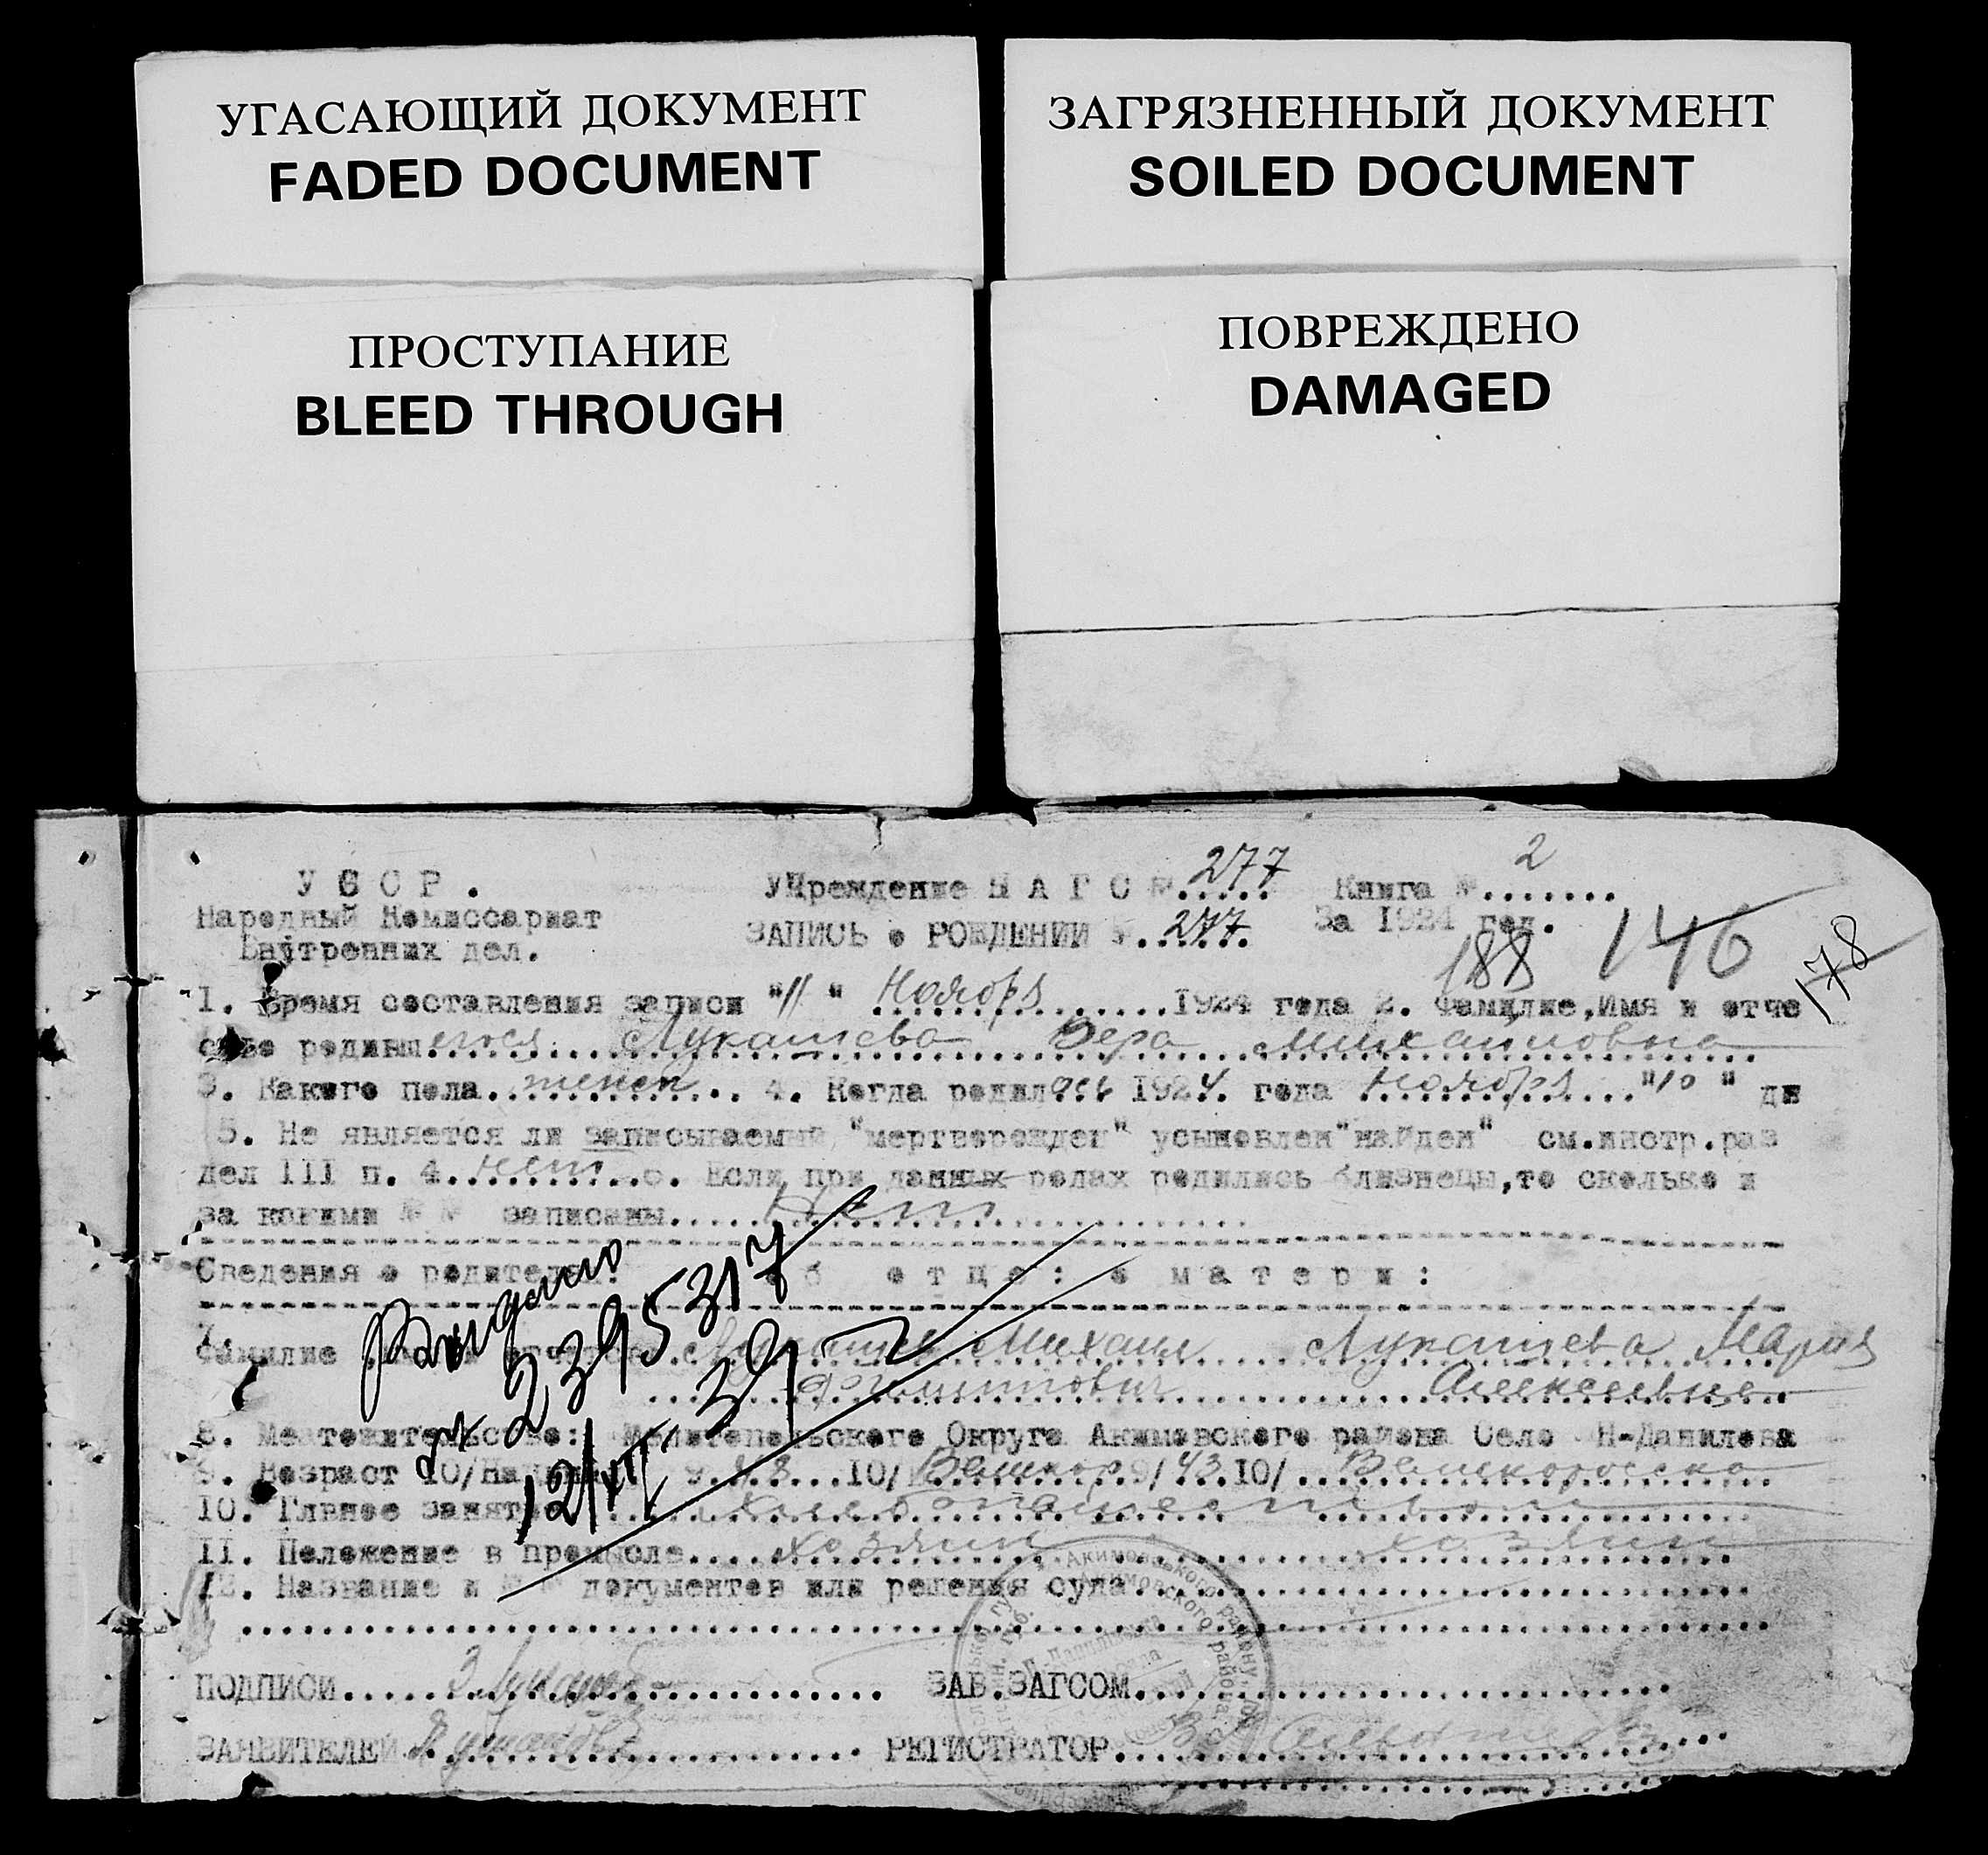 УГАСАЮЩИЙ ДОКУМЕНТ
FADED DOCUMENT
ЗАГРЯЗНЕННЫЙ ДОКУМЕНТ
SOILED DOCUMENT
ПРОСТУПАНИЕ
BLEED THROUGH
ПОВРЕЖДЕНО
DAMAGED
УССР. Учреждение ЗАГС №.277 Книга №.2
Народный Комиссариат ЗАПИСЬ о РОЖДЕНИИ №.277 За 1924 год.
Внутренних дел. 188 146 178
1. Время составления записи "11" Ноября 1924 года 2. Фамилие,Имя и отче
ство родивш егося Лукашева Вера Михайловна
3. Какого пола женск 4. Когда родилась 1924. года Ноября "10" дн
5. Не является ли записываемый "мертворожден" усыновлен "найден" см.инстр.раз
дел III п. 4 нет 6. Если при данных родах родились близнецы,то сколько и
за какими № № записаны Нет
Сведения о родителях: об отце: о матери:
7.
Фамилие отчество Михаил Лукашева Мария
Алексеевна
8. Местожительство: Мелитопольского Округа Акимовского района Село Н-Данилова
9. Возраст 10/ 9. 10/ 9/43.10/
10. Главное занят
11. Положение в промысле хозяин хозяин
12. Название и №№ документов или решения суда
Выдано
2395317
12/XII 39
ПОДПИСИ ЗАВ.ЗАГСОМ
ЗАЯВИТЕЛЕЙ РЕГИСТРАТОР
Акимовского району
Акимовского района